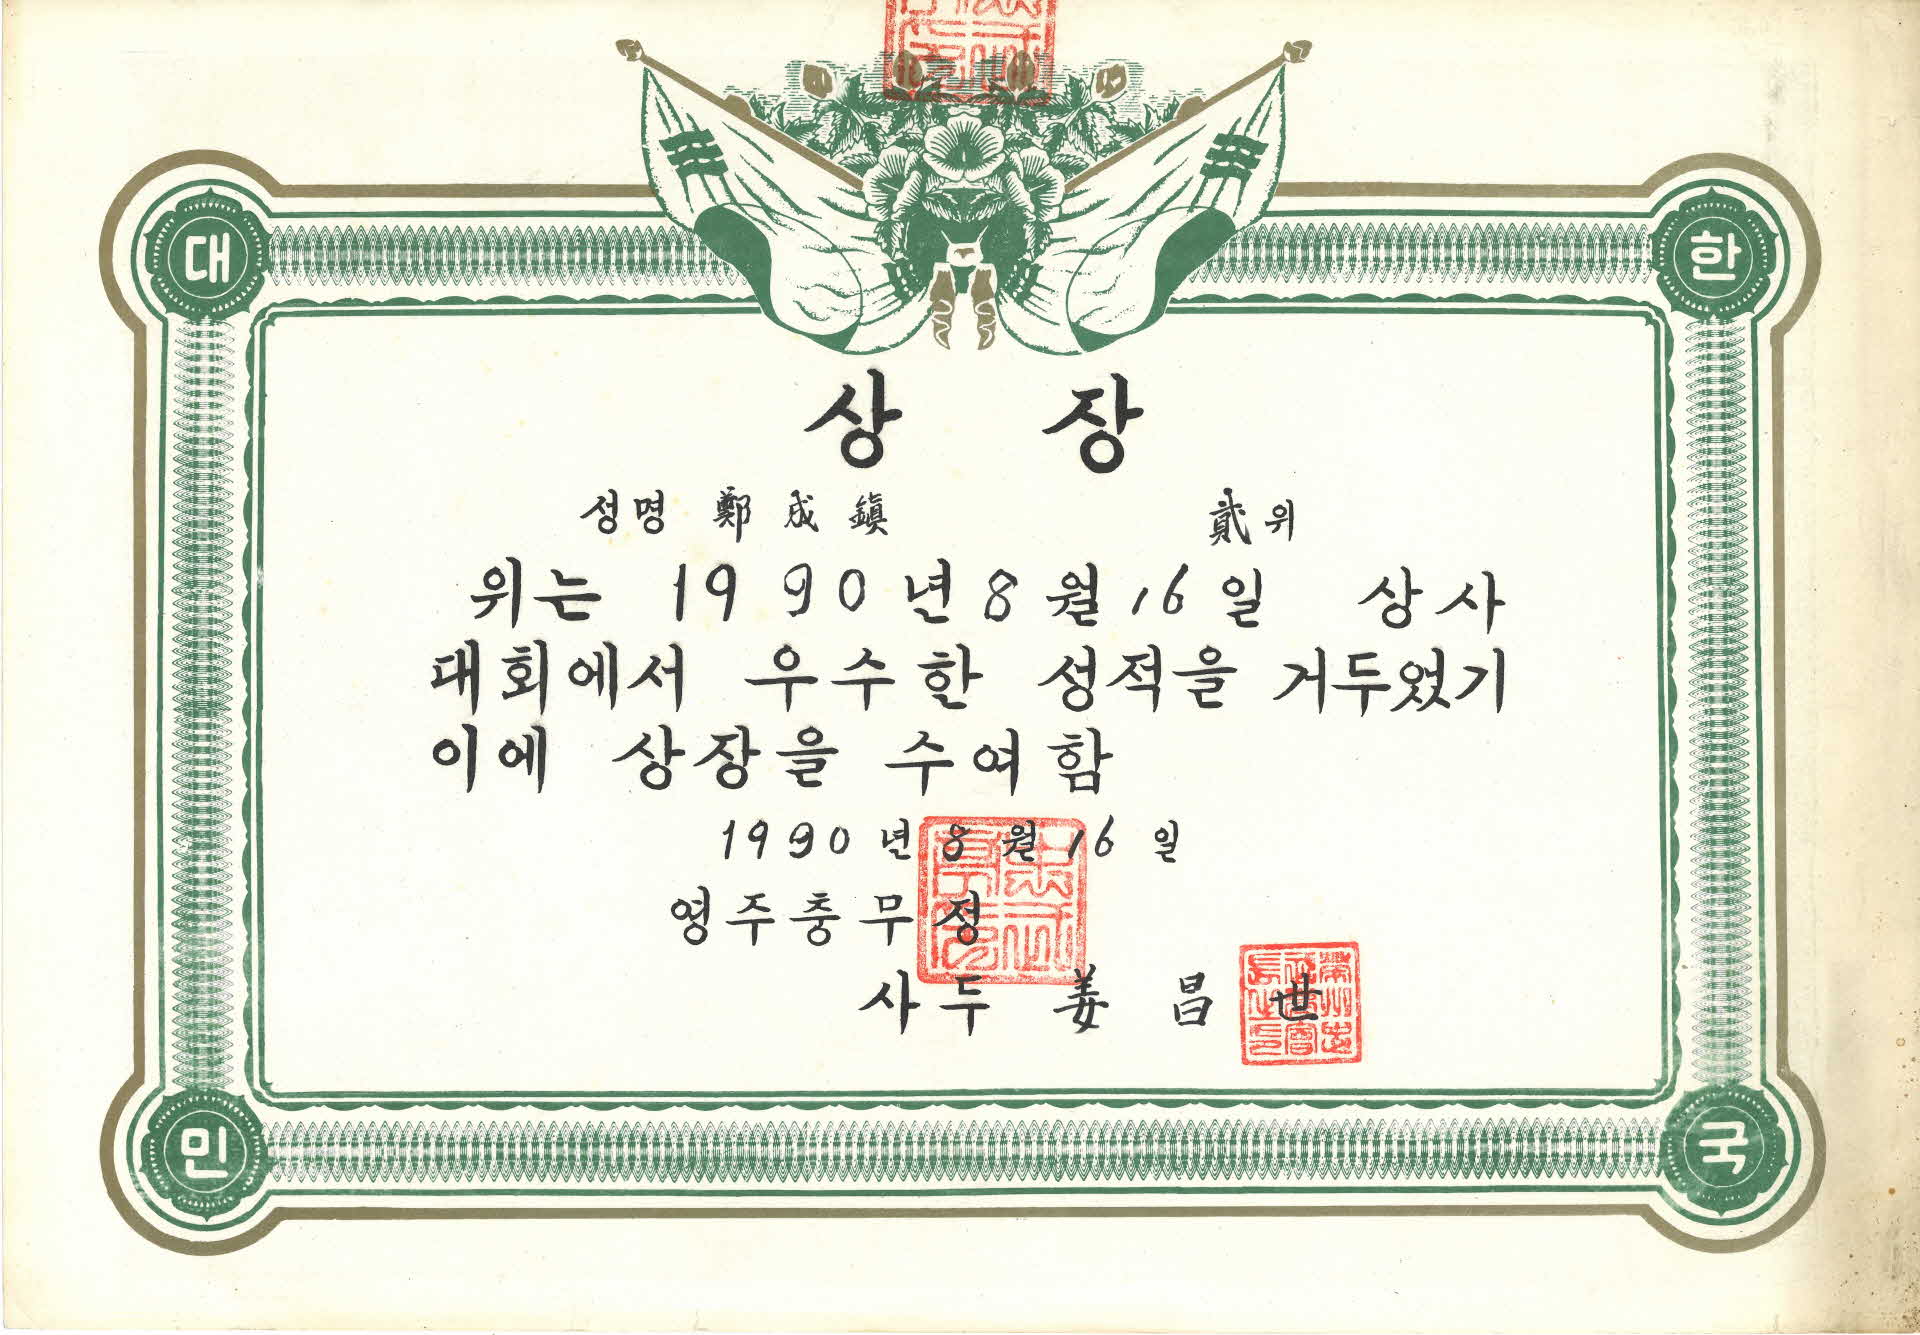 대 한
상 장
성명 鄭成鎭 貳위
위는 1990년 8월 16일 상사
대회에서 우수한 성적을 거두었기
이에 상장을 수여함
1990년 8월 16일
영주충무정
사두 姜昌世
민 국